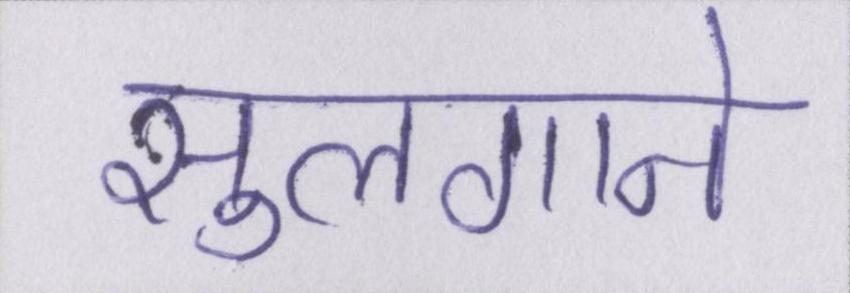 सुलगाने